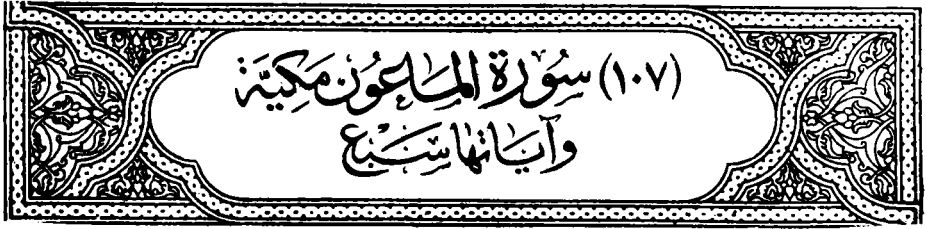 (١٠٧) سُوْرَةِ المَاعُون مَكِيَّة
وَآيَاتهَا سَبْع